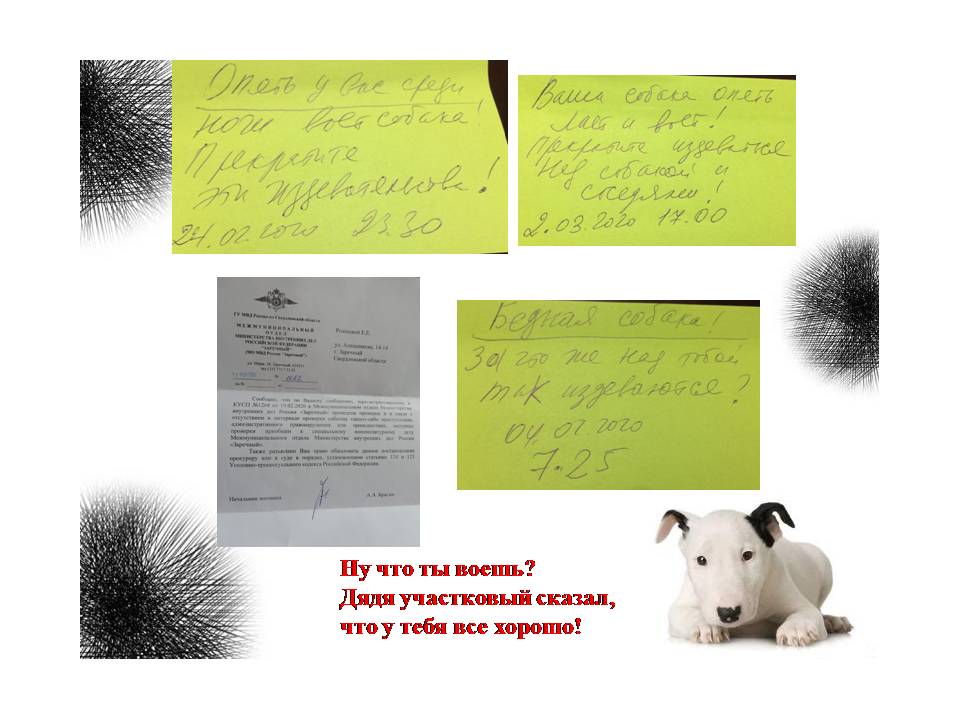 Опять у вас среди
ночи воет собака!
Прекратите
эти издевательства!
24.02.2020 23.30
Ваша собака опять
лает и воет!
Прекратите издеваться
над собакой и
соседями!
2.03.2020 17.00
ГУ МВД России по Свердловской области
МЕЖМУНИЦИПАЛЬНЫЙ
ОТДЕЛ
МИНИСТЕРСТВА ВНУТРЕННИХ ДЕЛ
РОССИЙСКОЙ ФЕДЕРАЦИИ
"ЗАРЕЧНЫЙ"
(МО МВД России "Заречный")
г. Заречный
Свердловской области
Сообщаю, что по Вашему сообщению, зарегистрированному в
КУСП от 19.02.2020 в Межмуниципальном отделе Министерства
внутренних дел России «Заречный» проведена проверка и в связи с
отсутствием в материале проверки события какого-либо преступления,
административного правонарушения или происшествия, материал
проверки приобщен к специальному номенклатурному делу
Межмуниципального отдела Министерства внутренних дел России
«Заречный».
Также разъясняю Ваше право обжаловать данное постановление
прокурору или в суде в порядке, установленном статьями 124 и 125
Уголовно-процессуального кодекса Российской Федерации.
Начальник полиции
Бедная собака!
За что же над тобой
так издеваются?
04.02.2020
7.25
Ну что ты воешь?
Дядя участковый сказал,
что у тебя все хорошо!